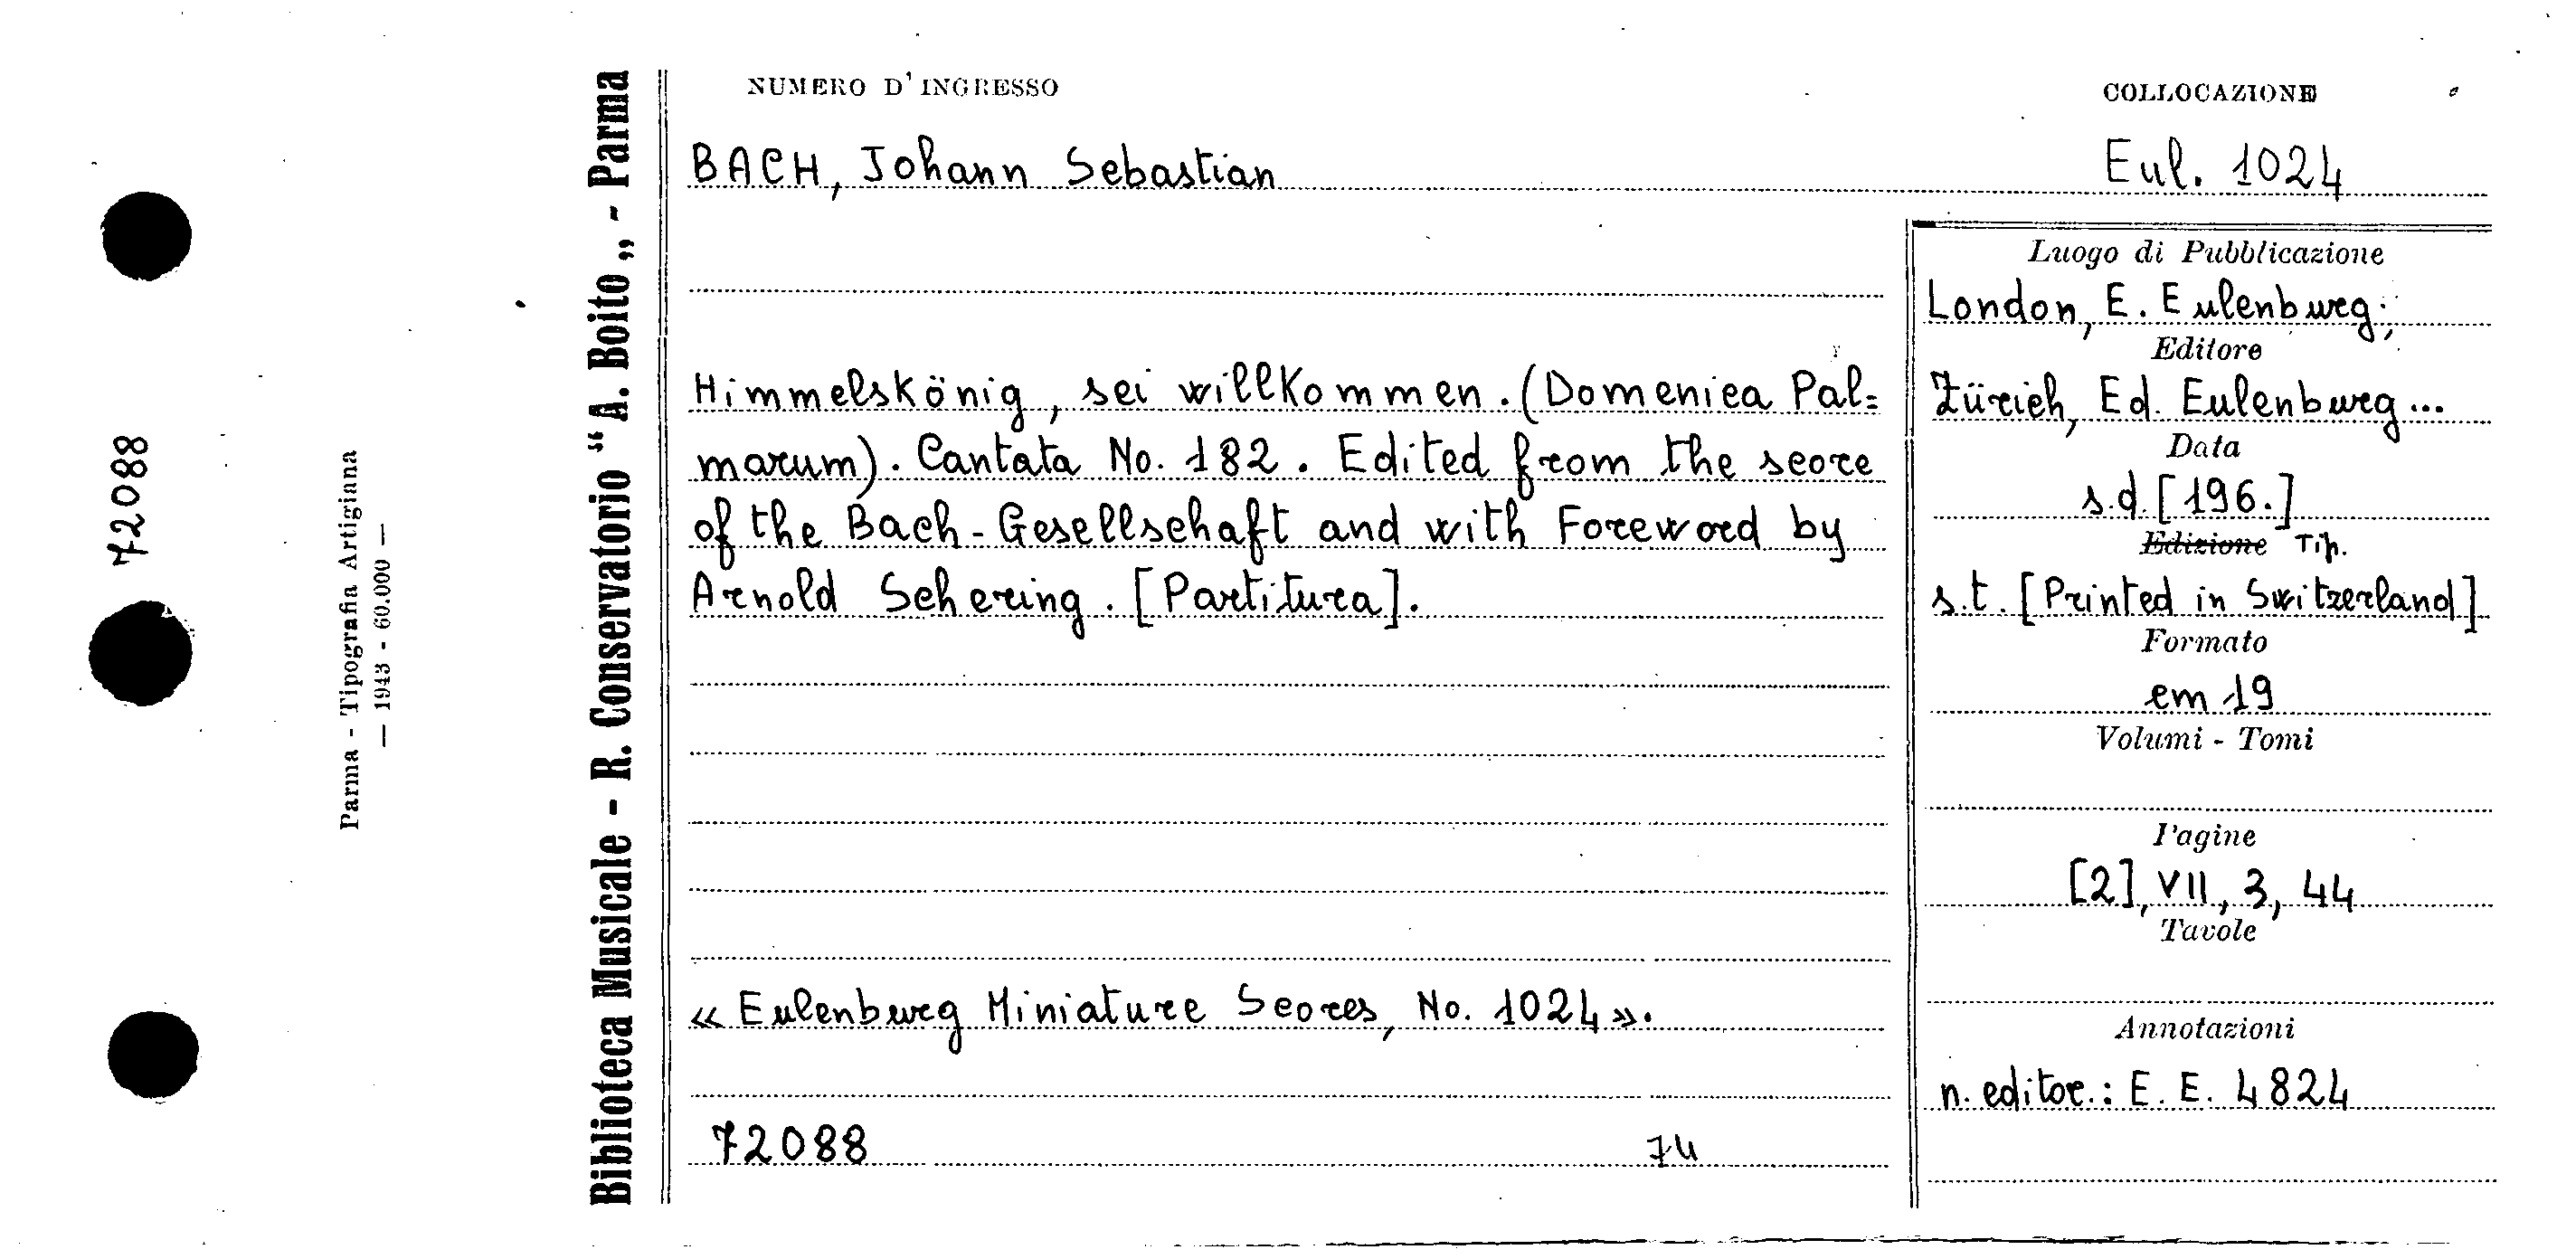 72088
Parma - Tipografia Artigiana
— 1943 - 60.000 —
Biblioteca Musicale - R. Conservatorio “A. Boito„ - Parma
NUMERO D'INGRESSO
COLLOCAZIONE
BACH, Johann Sebastian
Eul. 1024
Himmelskönig, sei willkommen. (Domenica Pal=
marum). Cantata No. 182. Edited from the score
of the Bach-Gesellschaft and with Foreword by
Arnold Schering. [Partitura].
« Eulenburg Miniature Scores, No. 1024 ».
72088
Luogo di Pubblicazione
London, E. Eulenburg;
Editore
Zürich, Ed. Eulenburg...
Data
s.d. [196.]
Edizione Tip.
s.t. [Printed in Switzerland]
Formato
cm 19
Volumi - Tomi
Pagine
[2], VII, 3, 44
Tavole
Annotazioni
n. editor.: E. E. 4824